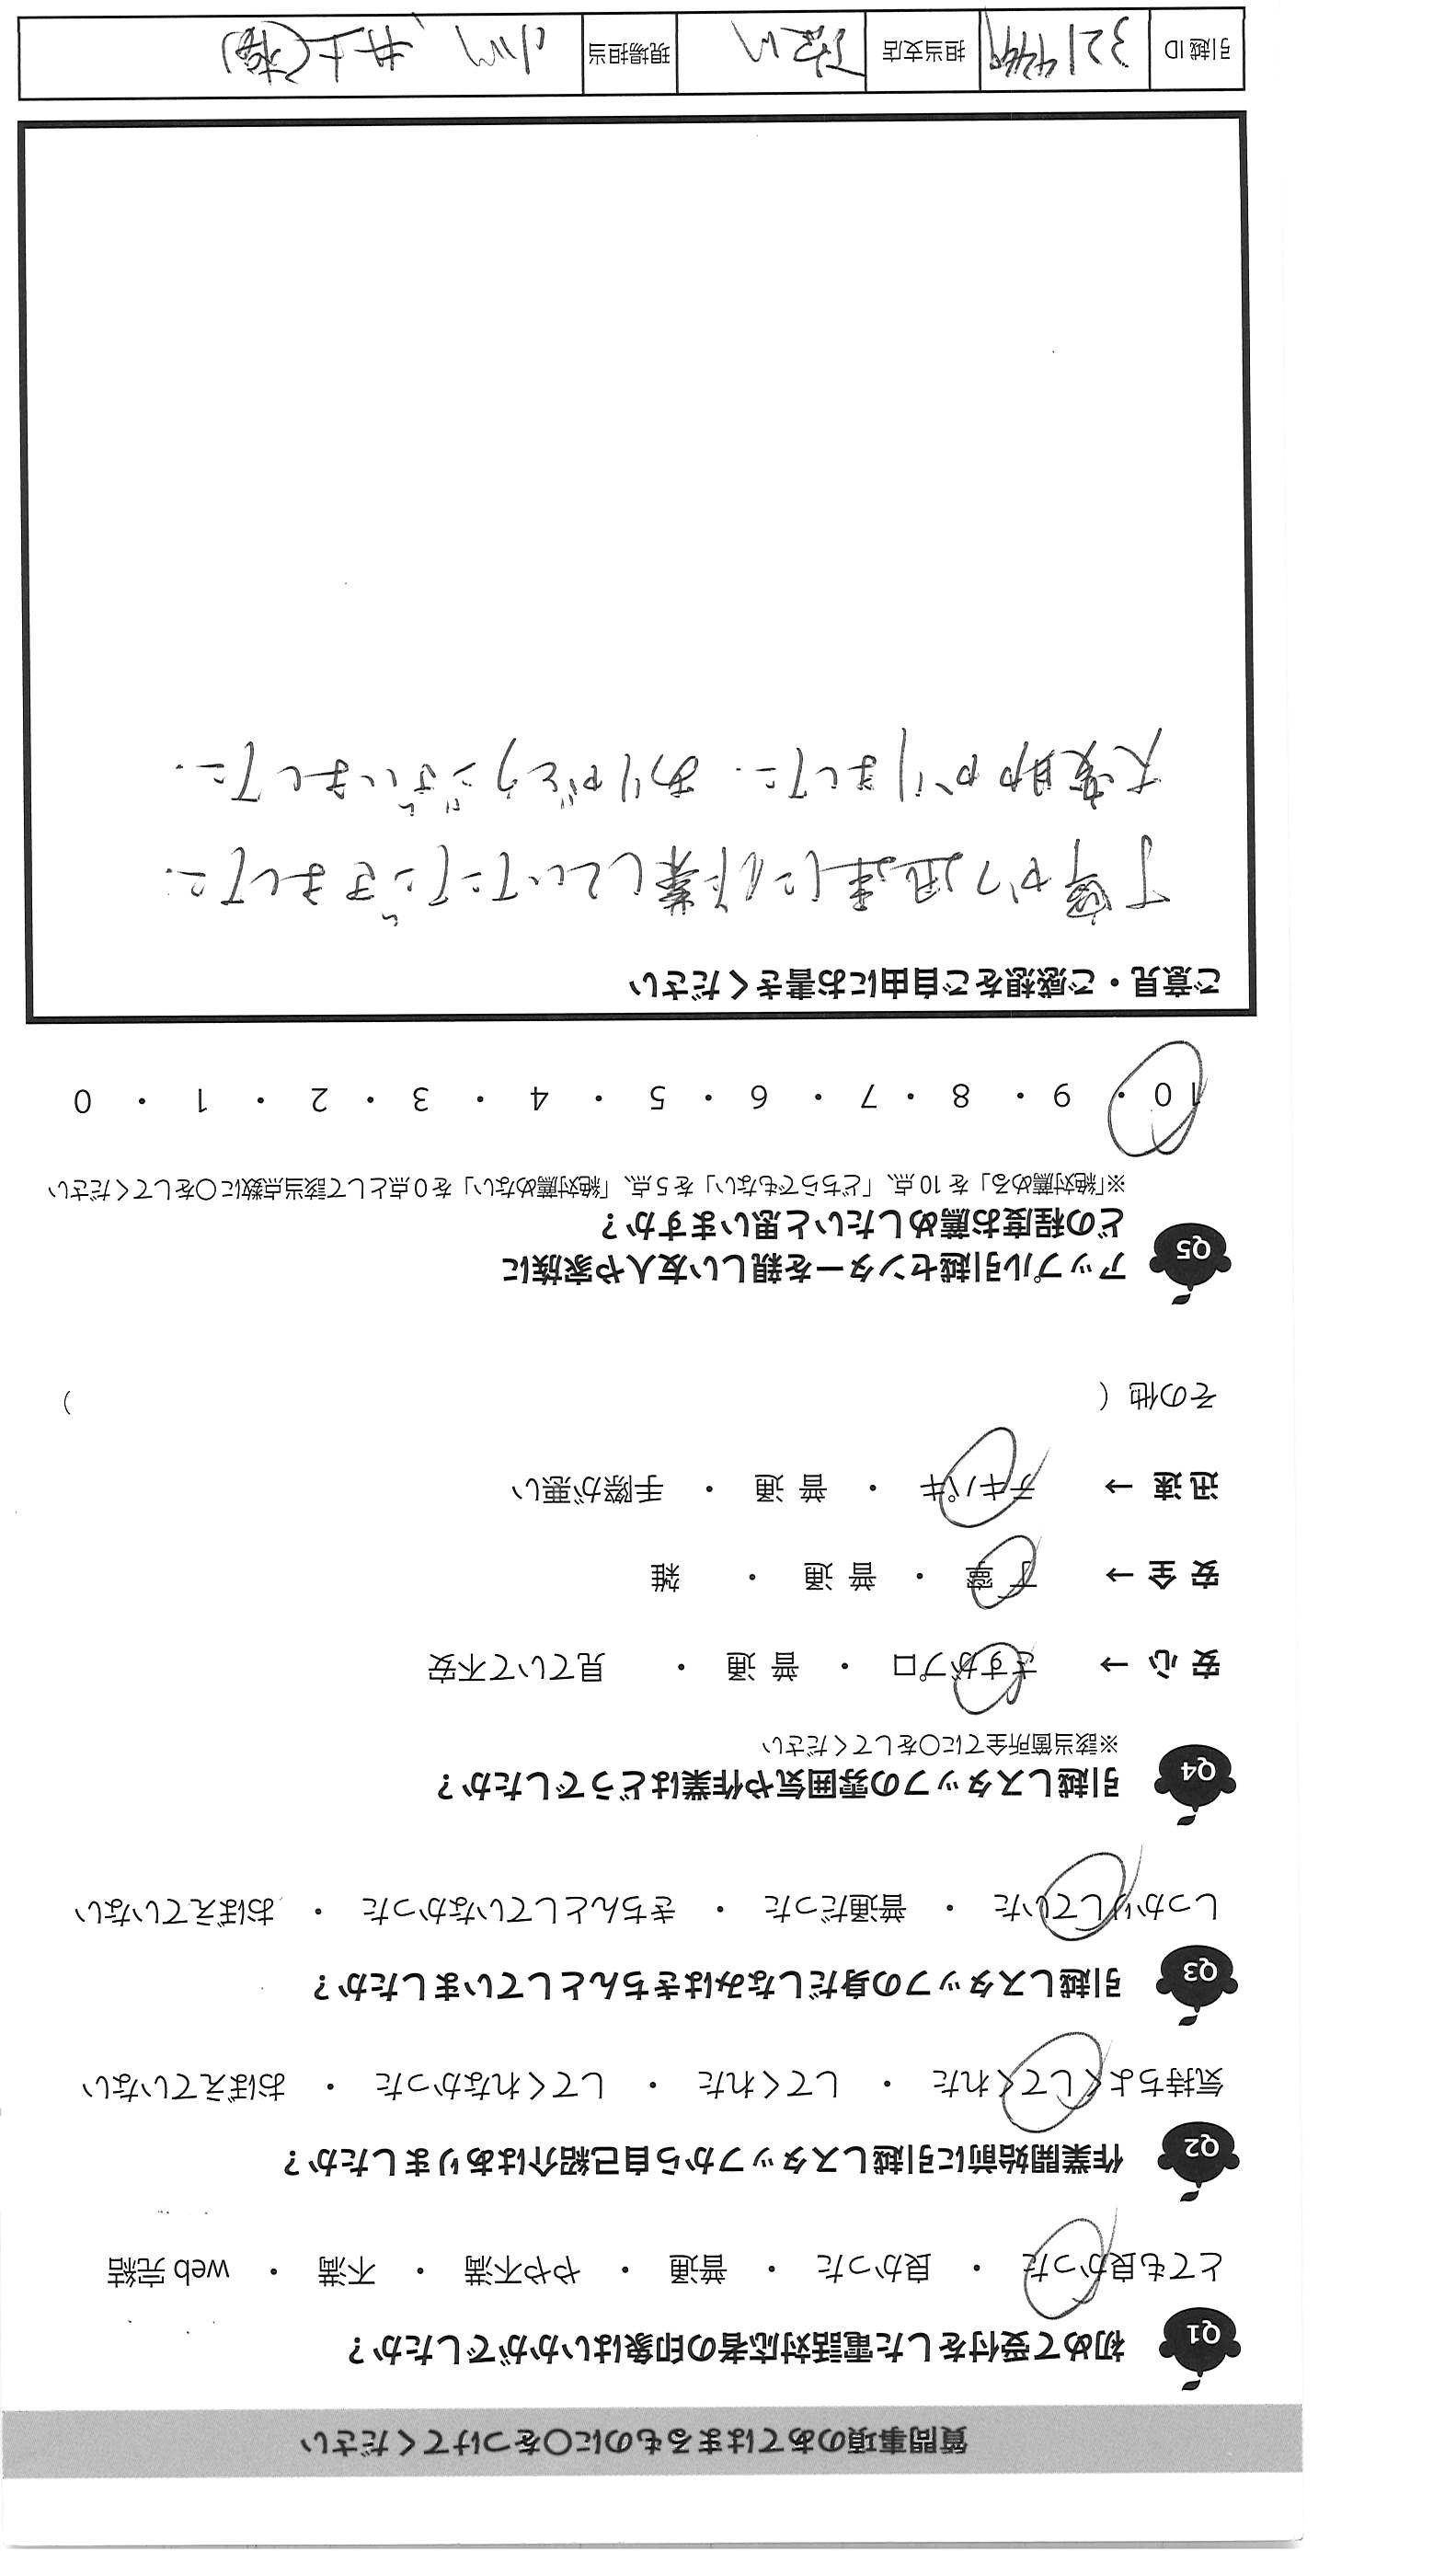 質問事項のあてはまるものに○をつけてください
Q1 初めて受付をした電話対応者の印象はいかがでしたか？
とても良かった ・ 良かった ・ 普通 ・ やや不満 ・ 不満 ・ web 完結
Q2 作業開始前に引越しスタッフから自己紹介はありましたか？
気持ちよくしてくれた ・ してくれた ・ してくれなかった ・ おぼえていない
Q3 引越しスタッフの身だしなみはきちんとしていましたか？
しっかりしていた ・ 普通だった ・ きちんとしていなかった ・ おぼえていない
Q4 引越しスタッフの雰囲気や作業はどうでしたか？
※該当箇所全てに○をしてください
安 心 → さすがプロ ・ 普 通 ・ 見ていて不安
安 全 → 丁 寧 ・ 普 通 ・ 雑
迅 速 → テキパキ ・ 普 通 ・ 手際が悪い
その他（ ）
Q5 アップル引越センターを親しい友人や家族に
どの程度お薦めしたいと思いますか？
※「絶対薦める」を 10 点、「どちらでもない」を 5 点、「絶対薦めない」を 0 点として該当点数に○をしてください
10 ・ 9 ・ 8 ・ 7 ・ 6 ・ 5 ・ 4 ・ 3 ・ 2 ・ 1 ・ 0
ご意見・ご感想をご自由にお書きください
丁寧かつ迅速に作業していただきました.
大変助かりました. ありがとうございました.
引越 ID 担当支店 現場担当 小川 井上